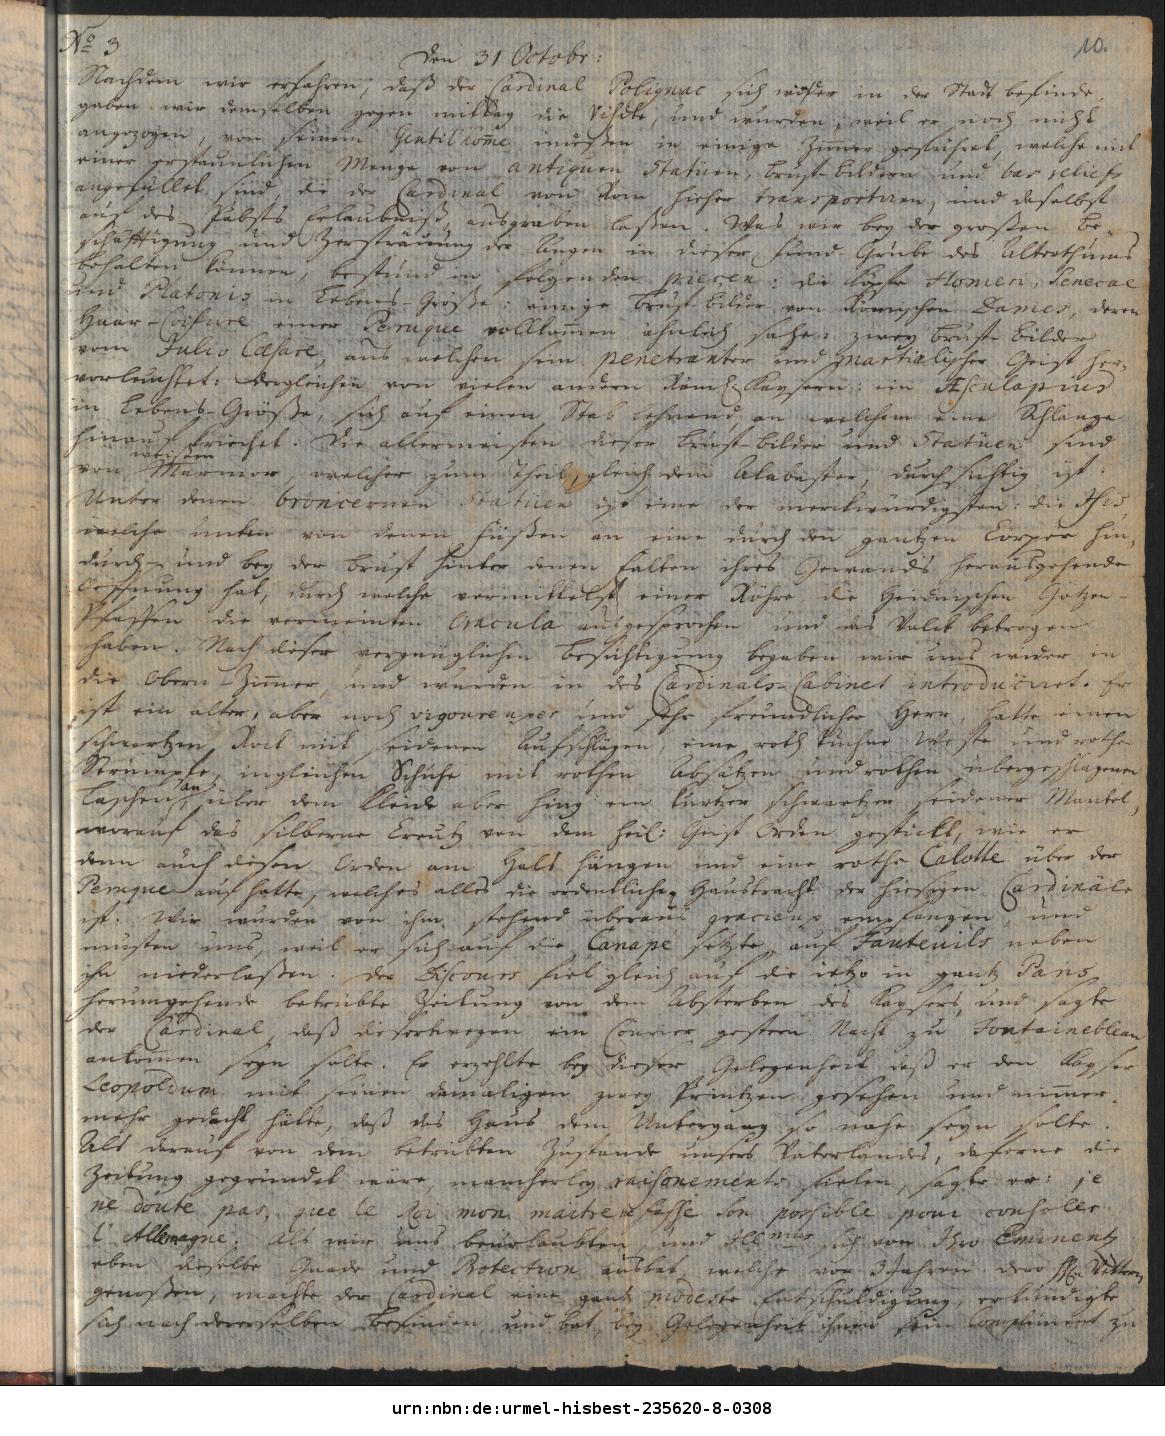 No 3
10.
Den 31 Octobr:
Nachdem wir erfahren, daß der Cardinal Polignac sich wider in der Stadt befinde,
gaben wir demselben gegen mittag die Visite, und wurden, weil er noch nicht
angezogen, von seinem Gentilhome indeßen in einige Zimer geführet, welche mit
einer erstaunlichen Menge von antiquen Statuen, brust-bildern und bas reliefs
angefüllet sind, die der Cardinal von Rom hieher transportiren, und daselbst
auf des Pabsts Erlaubniß, ausgraben laßen. Was wir bey der großen Be-
schäfftigung und Zersträuung der Augen in dieser fund-Grube des Alterthums
behalten können, bestund in folgenden piecen: die Köpfe Homeri, Senecae
und Platonis in Lebens-Größe: einige brust-bilder von Römischen Dames, deren
Haar-Coifure einer Peruque vollkomen ähnlich sahe: zwey brust-bilder
vom Julio Cæsare, aus welchen sein penetranter und martialischer Geist her-
vorleuchtet: dergleichen von vielen andern Römch: Kaysern: ein Æsculapius
in Lebens-Größe, sich auf einen Stab lehnend, an welchem eine Schlange
hinauf kriechet. Die allermeisten dieser brust-bilder und Statüen sind
von weißen Marmor, welcher zum Theil, gleich dem Alabaster, durchsichtig ist.
Unter denen broncernen Statüen ist eine der merckwürdigsten: die Isis,
welche unten von denen füßen an eine durch den gantzen Cörper hin-
durch- und bey der brust hinter denen falten ihres Gewands herausgehende
Oeffnung hat, durch welche vermittelst einer Röhre die Heidnischen Götzen-
Pfaffen die vermeinten Oracula ausgesprochen und das Volck betrogen
haben. Nach dieser vergnüglichen besichtigung begaben wir uns wider in
die Obern-Zimer, und wurden in des Cardinals-Cabinet introduciret. Er
ist ein alter, aber noch vigoureuxer und sehr freundlicher Herr, hatte einen
schwartzen Rock mit seidenen Aufschlägen, eine roth tuchne Weste und rothe
Strümpfe, ingleichen Schuhe mit rothen Absätzen und rothen übergeschlagenen
Laschen an, über dem Kleide aber hing ein kurtzer schwartzer seidener Mantel,
worauf das silberne Creutz von dem heil: Geist Orden gestickt, wie er
denn auch diesen Orden am Hals hängen und eine rothe Calotte über der
Peruque auf hatte, welches alles die ordentliche Haustracht der hiesigen Cardinäle
ist. Wir wurden von ihm stehend überaus gracieux empfangen und
musten uns, weil er sich auf die Canapé setzte, auf Fauteuils neben
ihn niederlaßen. Der Discours fiel gleich auf die ietzo in gantz Paris
herumgehende betrübte Zeitung von dem Absterben des Kaysers, und sagte
der Cardinal, daß dieserwegen ein Courier gestern Nacht zu Fontainebleau
ankomen seyn solte. Er erzehlte bey dieser Gelegenheit daß er den Kayser
Leopoldum mit seinen damaligen zwey Printzen gesehen und nimer-
mehr gedacht hätte, daß das Haus dem Untergang so nahe seyn solte.
Als darauf von dem betrübten Zustande unsers Vaterlandes, daferne die
Zeitung gegründet wäre, mancherley raisonements fielen, sagte er: je
ne doute pas, que le Roi mon maitre fasse son possible pour consoler
l'Allemagne. Als wir uns beurlaubten und Illmus sich von Ihro Eminentz
eben dieselbe Gnade und Protection ausbat, welche vor 3 Jahren dero Hℓ. Vettern
genoßen, machte der Cardinal eine gantz modeste Entschuldigung, erkundigte
sich nach derenselben befinden, und bat, bey Gelegenheit ihnen sein Compliment zu
urn:nbn:de:urmel-hisbest-235620-8-0308